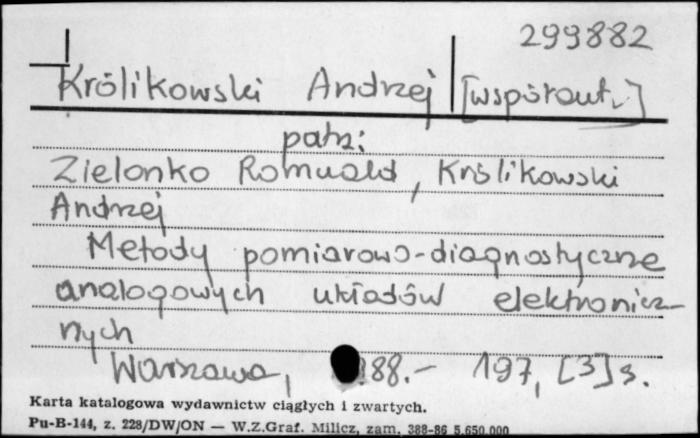 299882
Królikowski Andrzej [współaut.]
patrz:
Zielonko Romuald, Królikowski
Andrzej
Metody pomiarowo-diagnostyczne
analogowych układów elektronicz-
nych
Warszawa, 88.- 197, [3] s.
Karta katalogowa wydawnictw ciągłych i zwartych.
Pu-B-144, z. 228/DW/ON — W.Z.Graf. Milicz, zam. 388-86 5.650.000